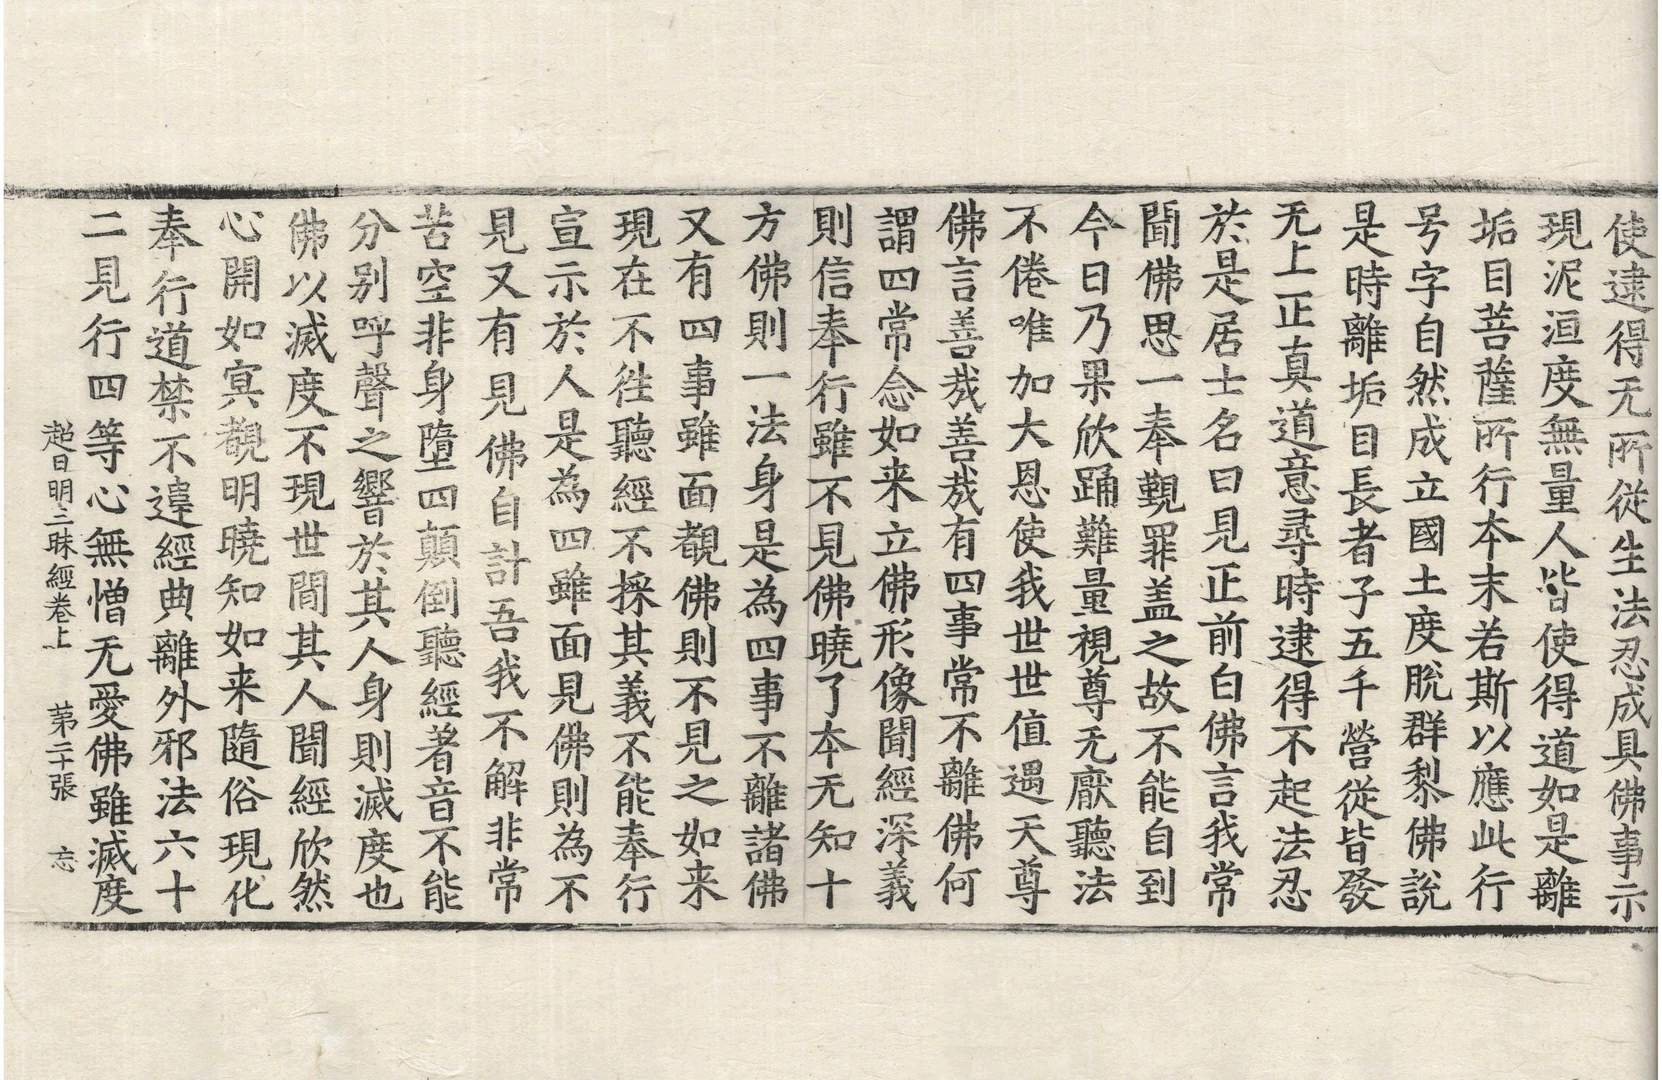 使逮得无所從生法忍成具佛事示
現泥洹度無量人皆使得道如是離
垢目菩薩所行本末若斯以應此行
号字自然成立國土度脫群黎佛說
是時離垢目長者子五千營從皆發
无上正真道意尋時逮得不起法忍
於是居士名曰見正前白佛言我常
聞佛思一奉覲罪盖之故不能自到
今日乃果欣踊難量視尊无厭聽法
不倦唯加大恩使我世世值遇天尊
佛言善㢤善㢤有四事常不離佛何
謂四常念如来立佛形像聞經深義
則信奉行雖不見佛曉了本无知十
方佛則一法身是為四事不離諸佛
又有四事雖面覩佛則不見之如来
現在不徃聽經不採其義不能奉行
宣示於人是為四雖面見佛則為不
見又有見佛自計吾我不解非常
苦空非身墮四顛倒聽經著音不能
分别呼聲之響於其人身則滅度也
佛以滅度不現世間其人聞經欣然
心開如㝠覩明曉知如来隨俗現化
奉行道禁不違經典離外邪法六十
二見行四等心無憎无愛佛雖滅度
超日明三昧經卷上　第二十張　忘